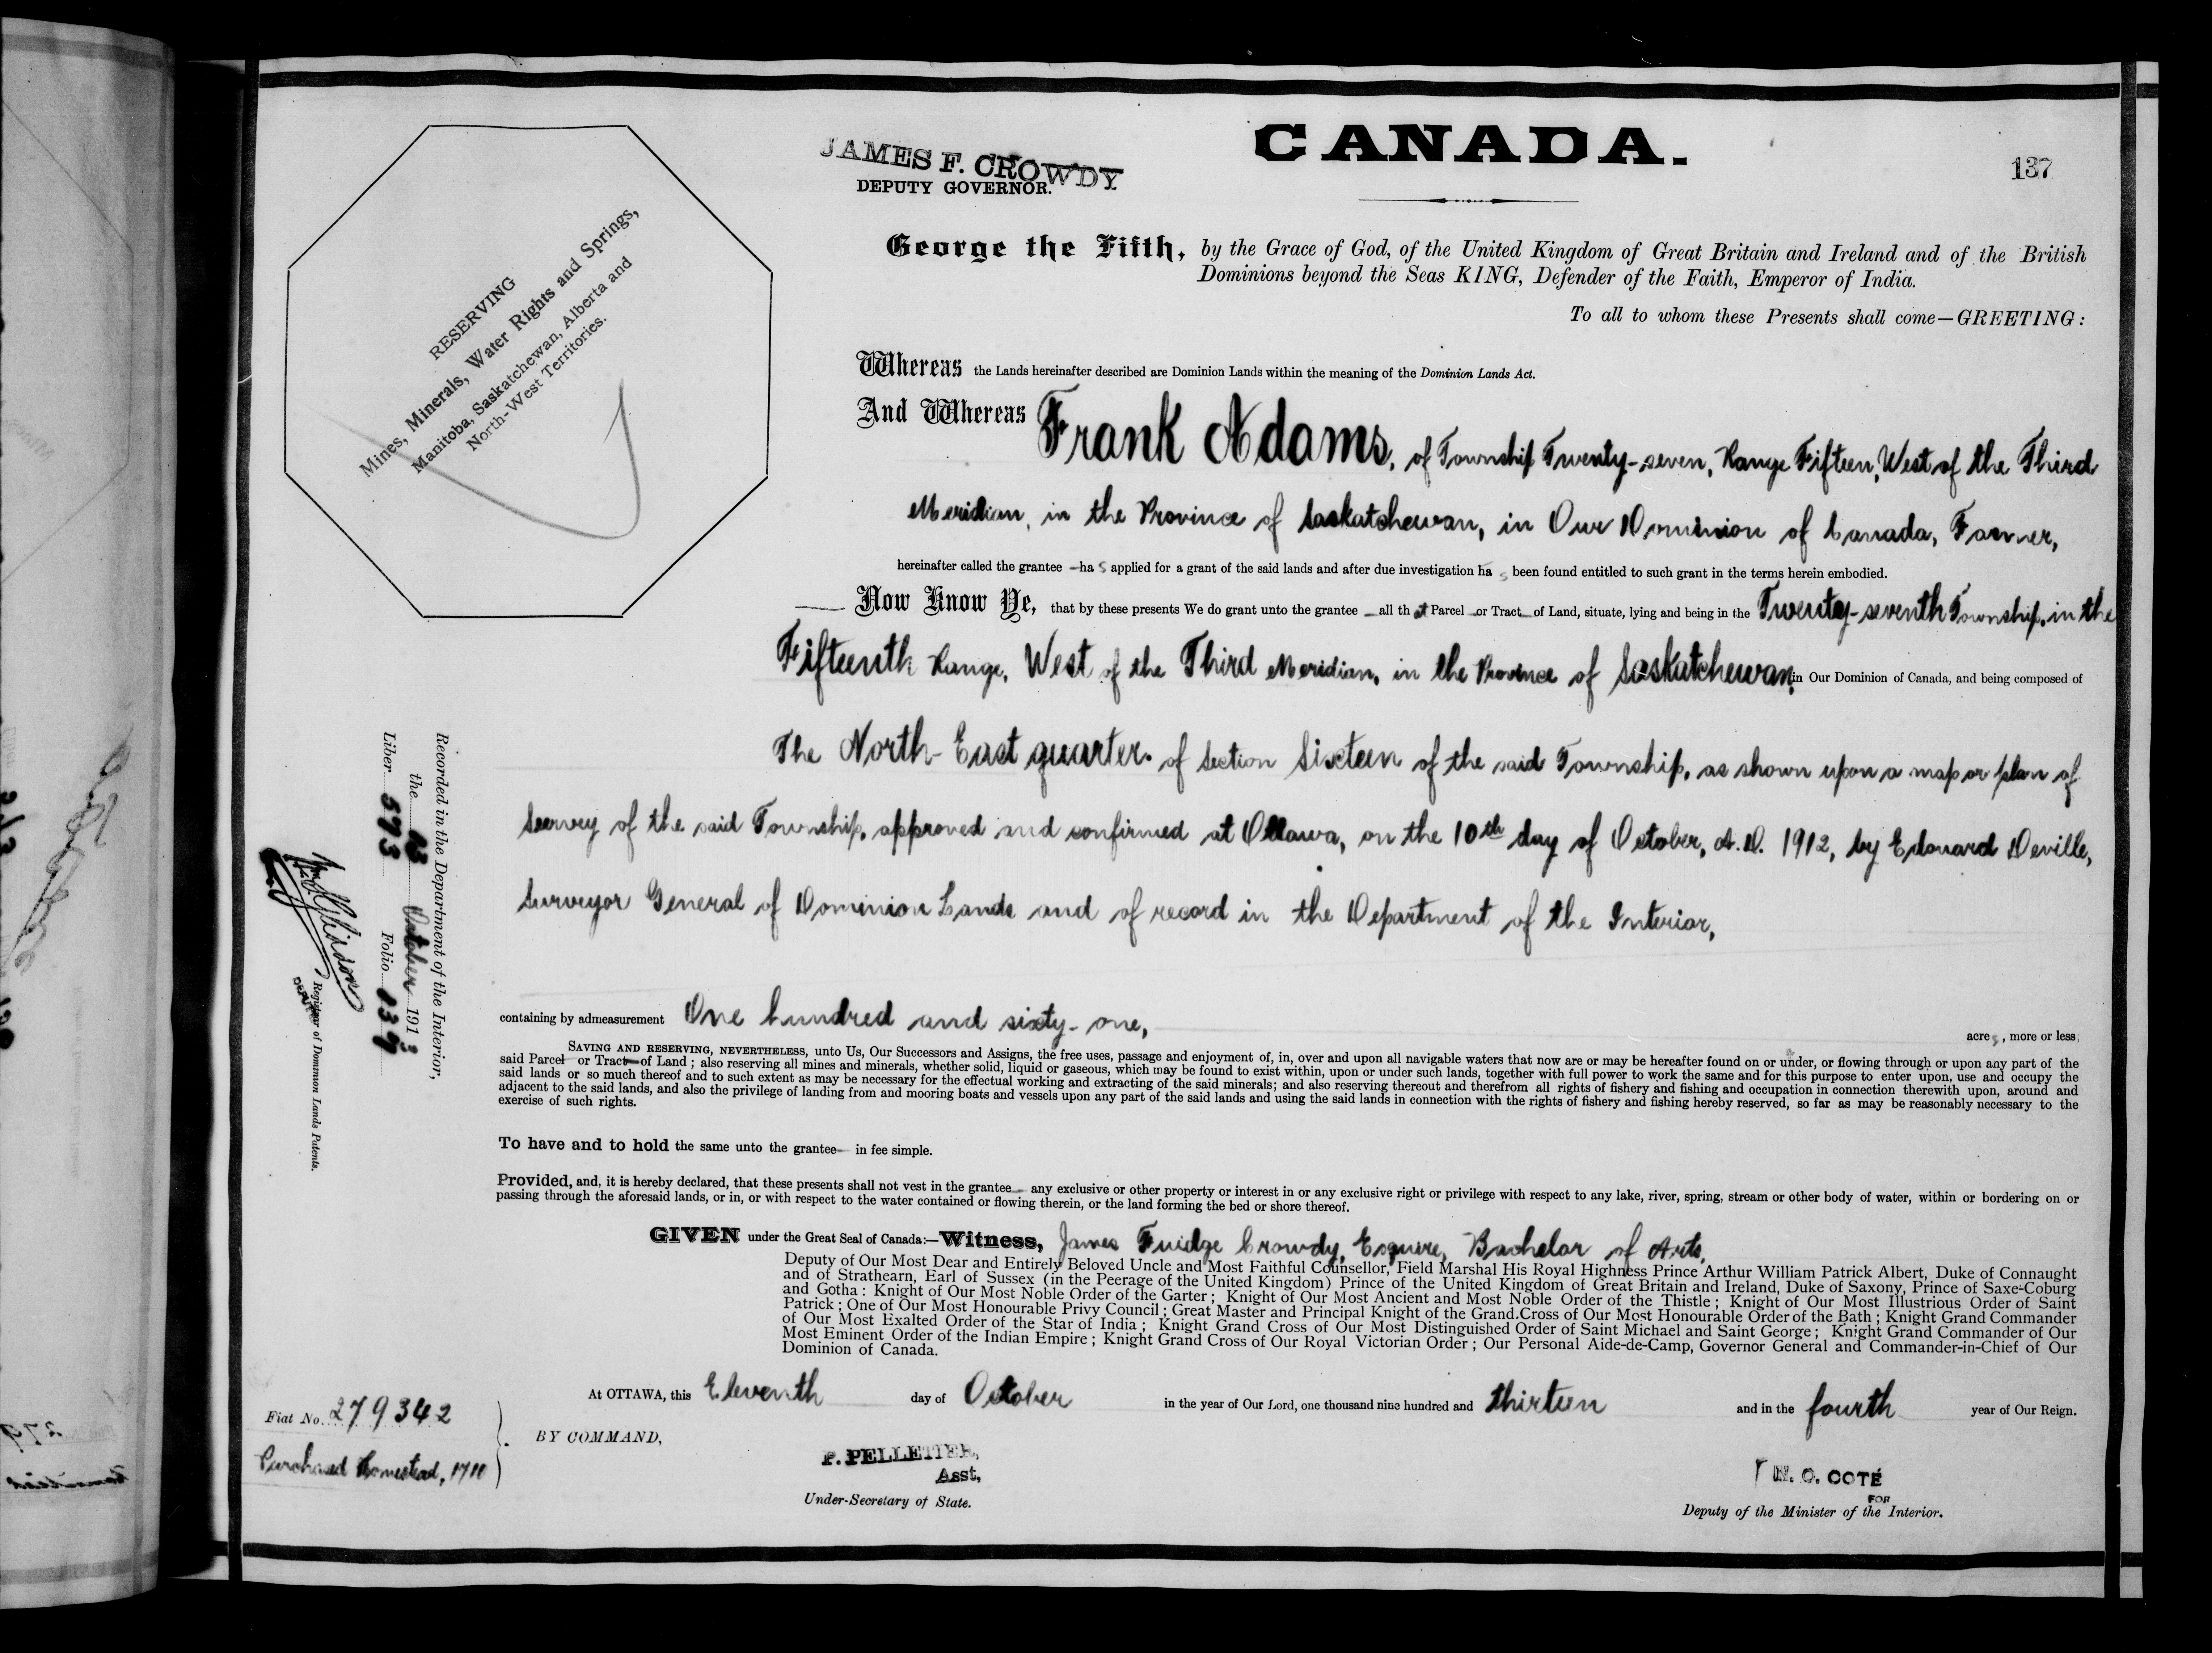 CANADA.
137
JAMES F. CROWDY
DEPUTY GOVERNOR.
RESERVING
Mines, Minerals, Water Rights and Springs,
Manitoba, Saskatchewan, Alberta and
North-West Territories.
George the Fifth, by the Grace of God, of the United Kingdom of Great Britain and Ireland and of the British
Dominions beyond the Seas KING, Defender of the Faith, Emperor of India.
To all to whom these Presents shall come—GREETING:
Whereas the Lands hereinafter described are Dominion Lands within the meaning of the Dominion Lands Act.
And Whereas Frank Adams, of Township Twenty-seven, Range Fifteen, West of the Third
Meridian, in the Province of Saskatchewan, in Our Dominion of Canada, Farmer,
hereinafter called the grantee — ha s applied for a grant of the said lands and after due investigation ha s been found entitled to such grant in the terms herein embodied.
— Now Know Ye, that by these presents We do grant unto the grantee — all th at Parcel — or Tract — of Land, situate, lying and being in the Twenty-seventh Township, in the
Fifteenth Range, West of the Third Meridian, in the Province of Saskatchewan, in Our Dominion of Canada, and being composed of
The North-East quarter of Section Sixteen of the said Township, as shown upon a map or plan of
Survey of the said Township, approved and confirmed at Ottawa, on the 10th day of October, A.D. 1912, by Edouard Deville,
Surveyor General of Dominion Lands and of record in the Department of the Interior,
containing by admeasurement One hundred and sixty-one, acres, more or less;
SAVING AND RESERVING, NEVERTHELESS, unto Us, Our Successors and Assigns, the free uses, passage and enjoyment of, in, over and upon all navigable waters that now are or may be hereafter found on or under, or flowing through or upon any part of the
said Parcel or Tract—of Land; also reserving all mines and minerals, whether solid, liquid or gaseous, which may be found to exist within, upon or under such lands, together with full power to work the same and for this purpose to enter upon, use and occupy the
said lands or so much thereof and to such extent as may be necessary for the effectual working and extracting of the said minerals; and also reserving thereout and therefrom all rights of fishery and fishing and occupation in connection therewith upon, around and
adjacent to the said lands, and also the privilege of landing from and mooring boats and vessels upon any part of the said lands and using the said lands in connection with the rights of fishery and fishing hereby reserved, so far as may be reasonably necessary to the
exercise of such rights.
To have and to hold the same unto the grantee— in fee simple.
Provided, and, it is hereby declared, that these presents shall not vest in the grantee— any exclusive or other property or interest in or any exclusive right or privilege with respect to any lake, river, spring, stream or other body of water, within or bordering on or
passing through the aforesaid lands, or in, or with respect to the water contained or flowing therein, or the land forming the bed or shore thereof.
GIVEN under the Great Seal of Canada:—Witness, James Fuidge Crowdy, Esquire, Bachelor of Arts,
Deputy of Our Most Dear and Entirely Beloved Uncle and Most Faithful Counsellor, Field Marshal His Royal Highness Prince Arthur William Patrick Albert, Duke of Connaught
and of Strathearn, Earl of Sussex (in the Peerage of the United Kingdom) Prince of the United Kingdom of Great Britain and Ireland, Duke of Saxony, Prince of Saxe-Coburg
and Gotha: Knight of Our Most Noble Order of the Garter; Knight of Our Most Ancient and Most Noble Order of the Thistle; Knight of Our Most Illustrious Order of Saint
Patrick; One of Our Most Honourable Privy Council; Great Master and Principal Knight of the Grand.Cross of Our Most Honourable Order of the Bath; Knight Grand Commander
of Our Most Exalted Order of the Star of India; Knight Grand Cross of Our Most Distinguished Order of Saint Michael and Saint George; Knight Grand Commander of Our
Most Eminent Order of the Indian Empire; Knight Grand Cross of Our Royal Victorian Order; Our Personal Aide-de-Camp, Governor General and Commander-in-Chief of Our
Dominion of Canada.
At OTTAWA, this Eleventh day of October in the year of Our Lord, one thousand nine hundred and thirteen and in the fourth year of Our Reign.
BY COMMAND,
P. PELLETIER,
Asst,
Under-Secretary of State.
N. O. COTÉ
FOR
Deputy of the Minister of the Interior.
Fiat No. 279342
Purchased Homestead, 1710
Recorded in the Department of the Interior,
the October 1913
Liber 593 Folio 137
DEPUTY
Registrar of Dominion Lands Patents.